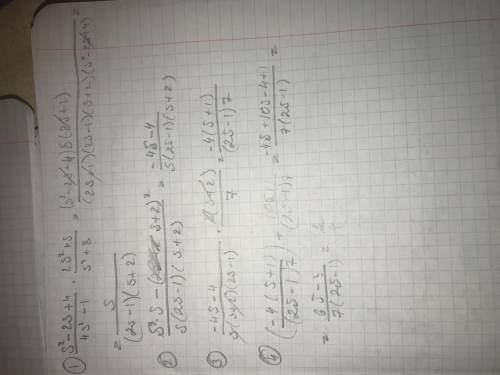 1) (s² - 2s + 4)/(4s² - 1) · (2s² + s)/(s³ + 8) = (s² - 2s + 4) s (2s + 1)/((2s + 1)(2s - 1)(s + 2)(s² - 2s + 4)) =
= s/((2s - 1)(s + 2))
2) (s · s - (s + 2)²)/(s(2s - 1)(s + 2)) = (-4s - 4)/(s(2s - 1)(s + 2))
3) (-4s - 4)/(s(s + 2)(2s - 1)) · s(s + 2)/7 = -4(s + 1)/((2s - 1)7
4) (-4(s + 1)/((2s - 1)7) + /((2s - 1)7 = (-4s + 10s - 4 + 1)/(7(2s - 1)) =
= (6s - 3)/(7(2s - 1)) =